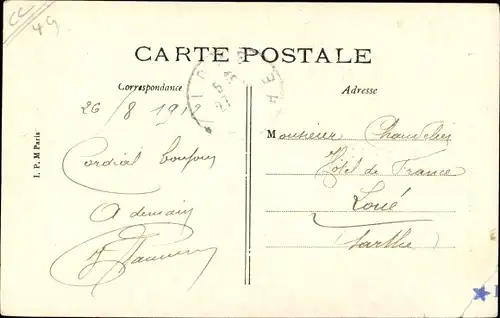 CC
49
CARTE POSTALE
Correspondance
Adresse
26/8 1912
Cordial bonjour
A demain
I. P. M Paris
Monsieur Chandelier
Hôtel de France
Loué
(Sarthe)